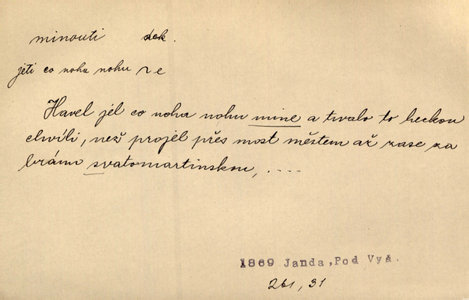 minouti dok.
jeti co noha nohu ze
Havel jel co noha nohu mine a tvalo to heckou
chvíli, než projel přes most městem až zase za
bránu svatomartinskou, ....
1869 Janda, Pod Vyš.
261, 31